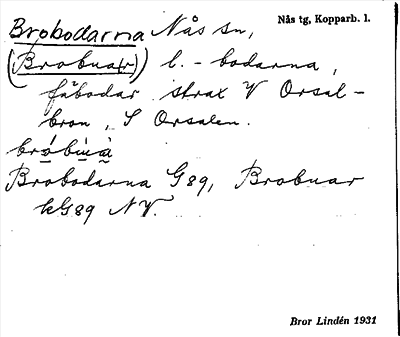 Brobodarna Nås sn,
Nås tg, Kopparb. l.
(Brobua(r)) l. -bodarna,
fäbodar strax V Orsal-
bron, S Orsalen.
Brobodarna G89, Brobuar
kG89 NV.
Bror Lindén 1931